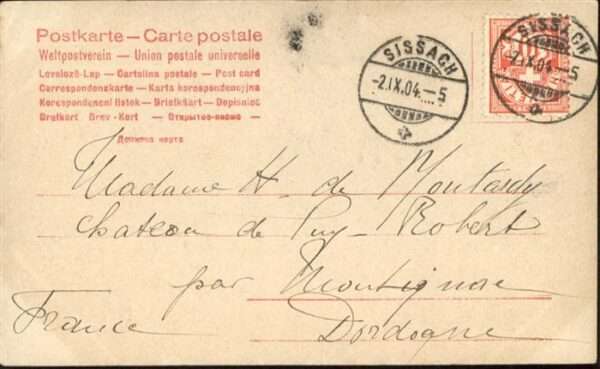 Postkarte — Carte postale
Weltpostverein — Union postale universelle
Levelező-Lap — Cartolina postale — Post card
Correspondenzkarte — Karta korespondencyjna
Korespondenční lístek — Briefkaart — Dopisnica
Brefkort Brev-Kort — Открытое письмо —
Дописна карта
SISSACH
-2.IX.04.-5
SISSACH
-2.IX.04.-5
10
Madame H. de Montardy
chateau de Puy-Robert
par Montignac
France Dordogne